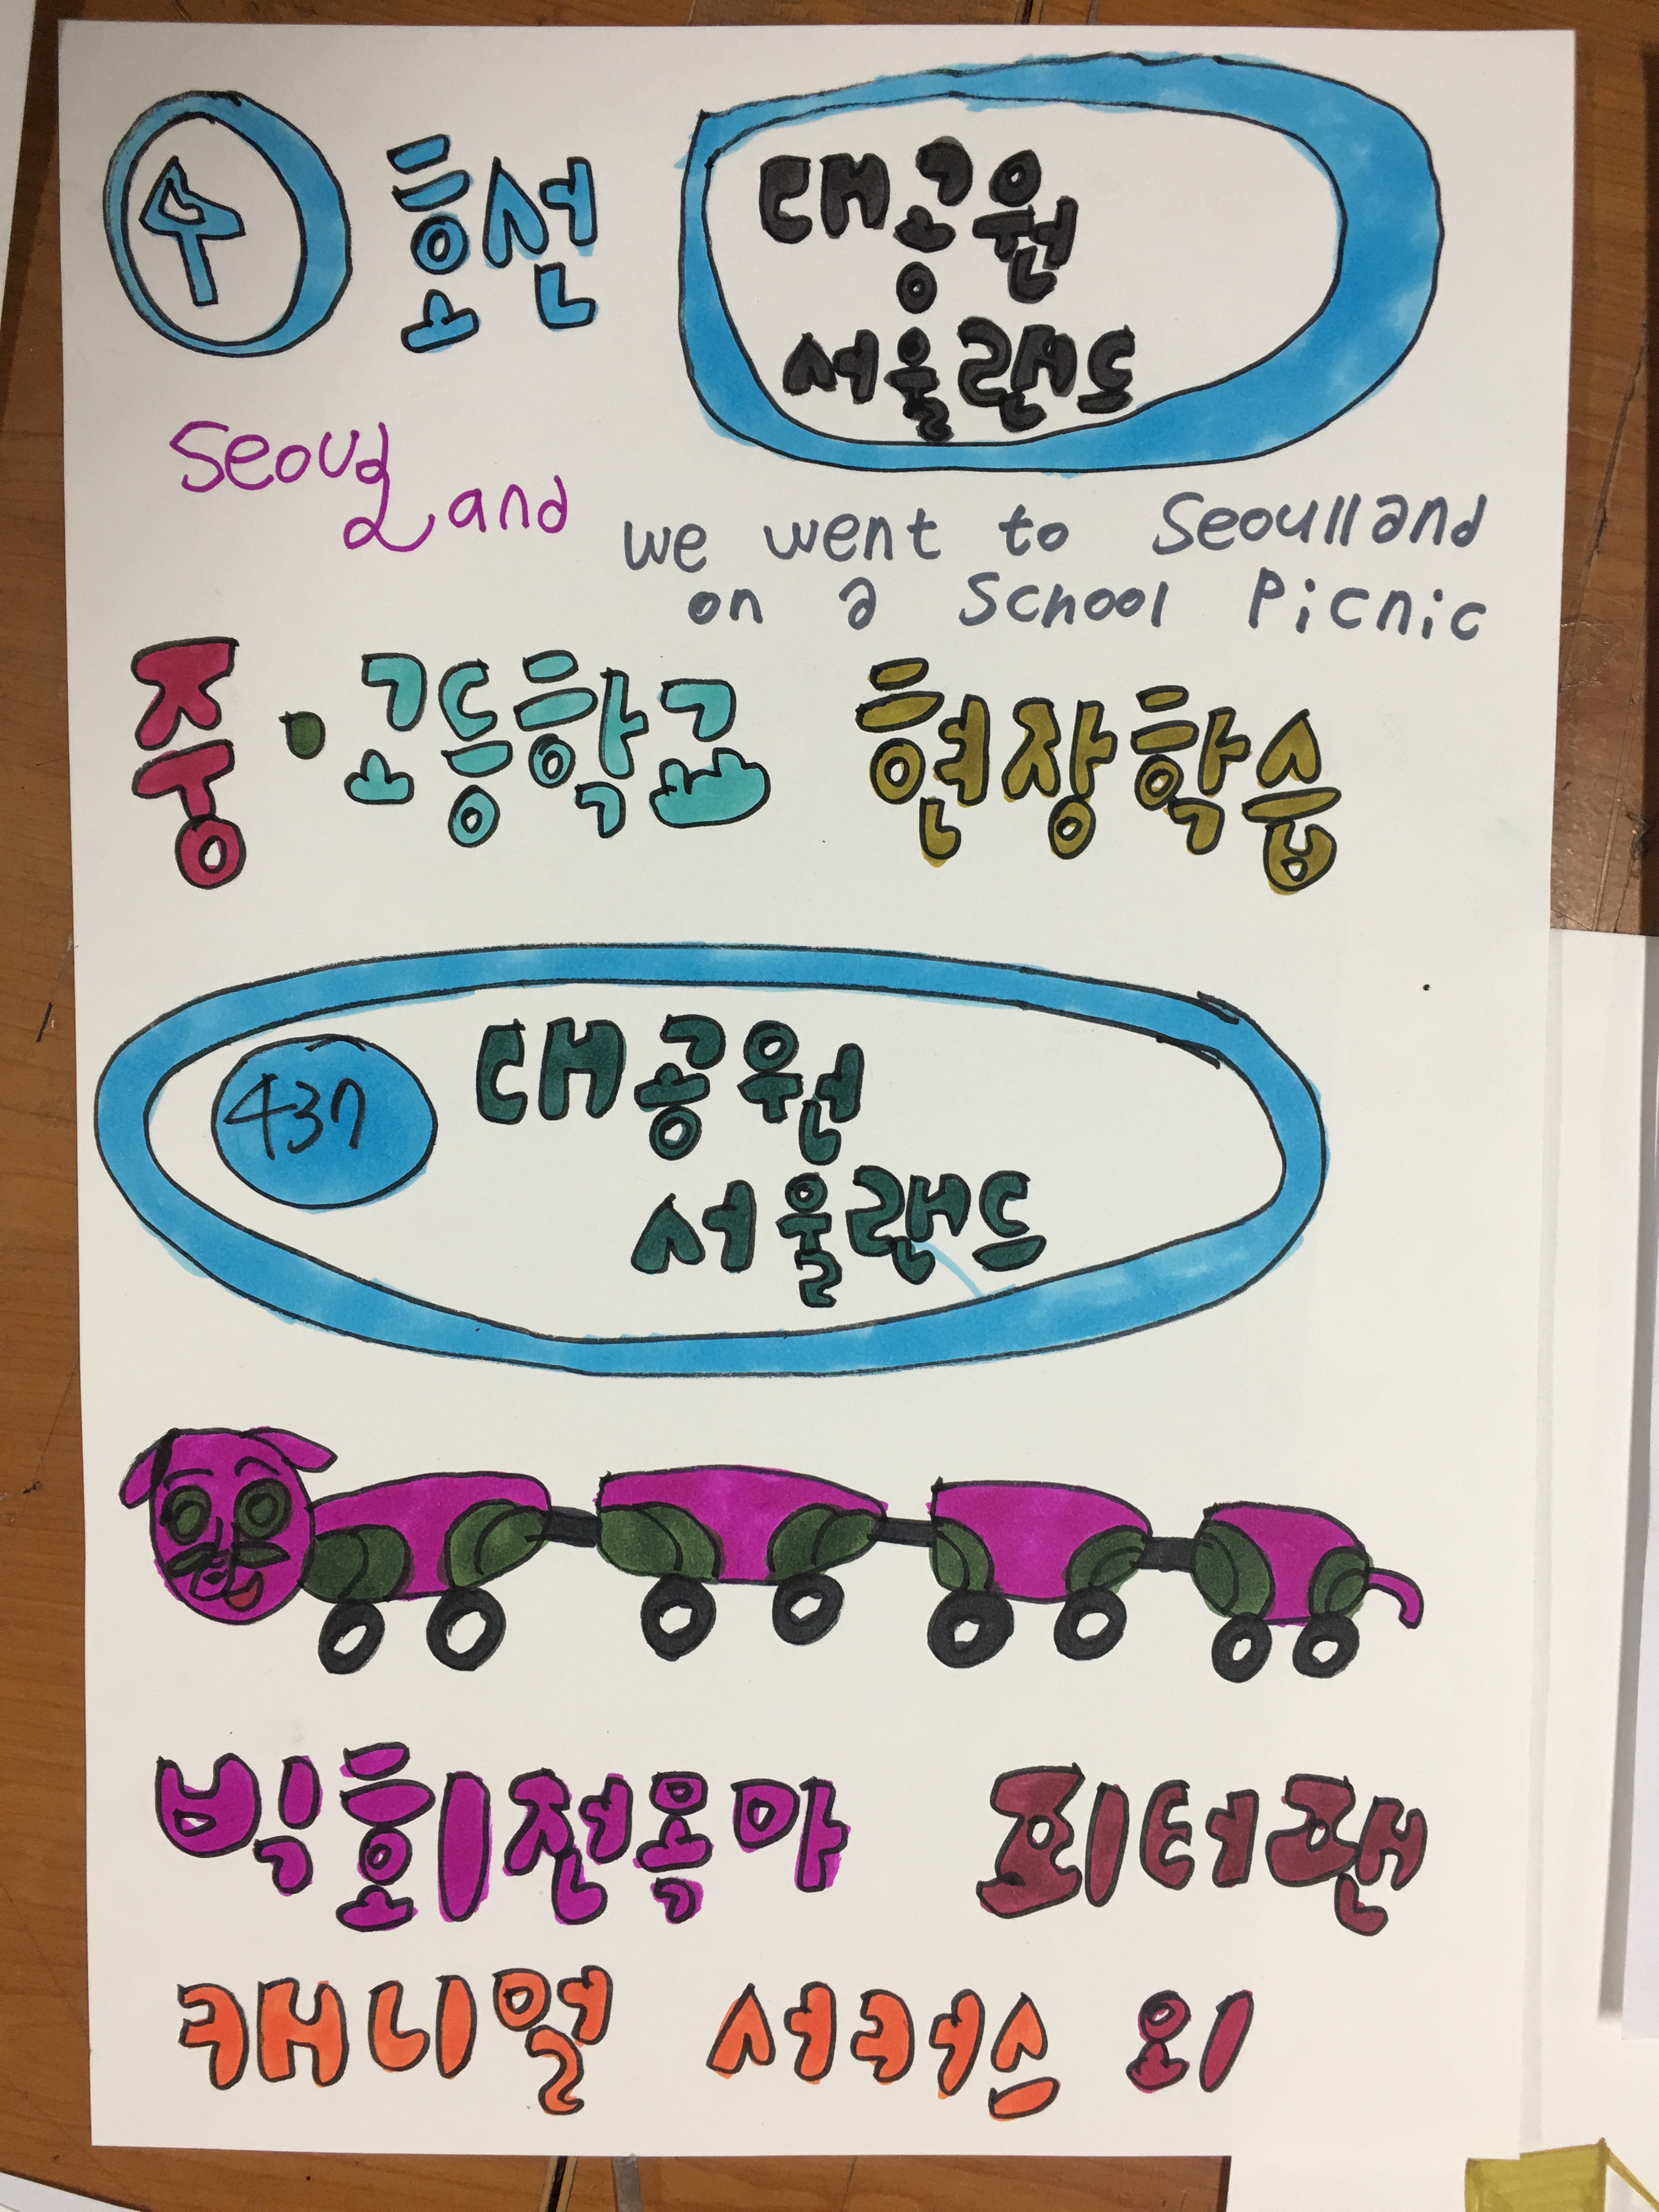 4 호선
대공원
서울랜드
Seoul Land
we went to Seoulland
on a School Picnic
중·고등학교 현장학습
437 대공원
서울랜드
빅회전목마 피터팬
캐니멀 서커스 외